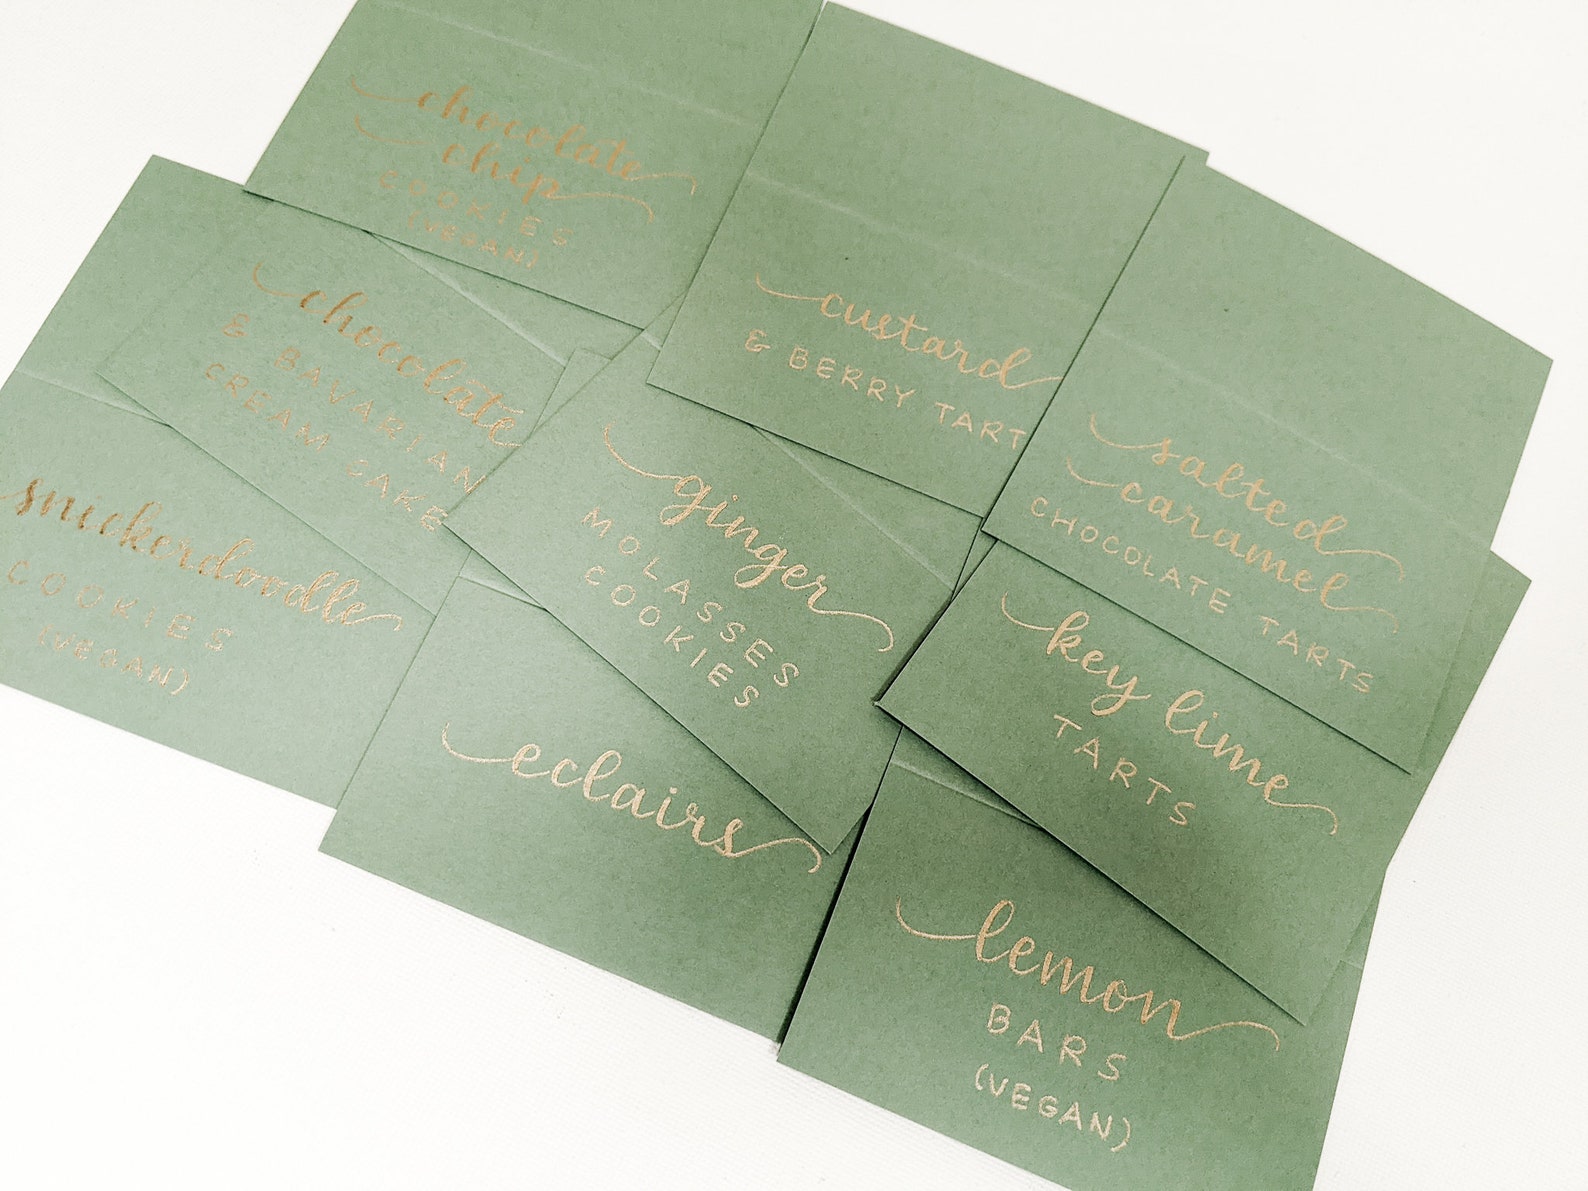 chocolate
chip
COOKIES
(VEGAN)
custard
& BERRY TART
salted
caramel
CHOCOLATE TARTS
chocolate
& BAVARIAN
CREAM CAKE
ginger
MOLASSES
COOKIES
key lime
TARTS
snickerdoodle
COOKIES
(VEGAN)
eclairs
lemon
BARS
(VEGAN)